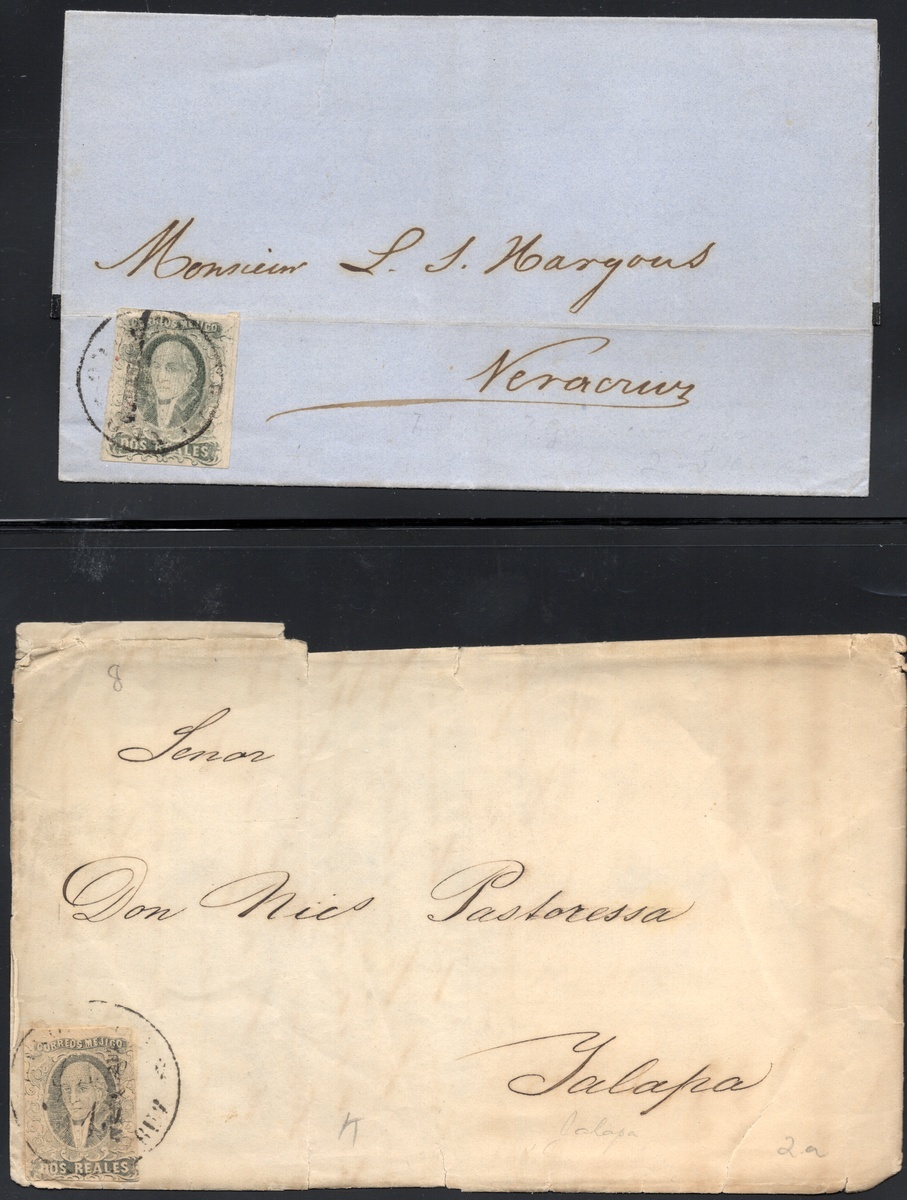 Monsieur L. S. Hargous
Veracruz
CORREOS MEJICO
DOS REALES
8
Senor
Don Nics Pastoressa
Jalapa
CORREOS MEJICO
DOS REALES
K
Jalapa
2a